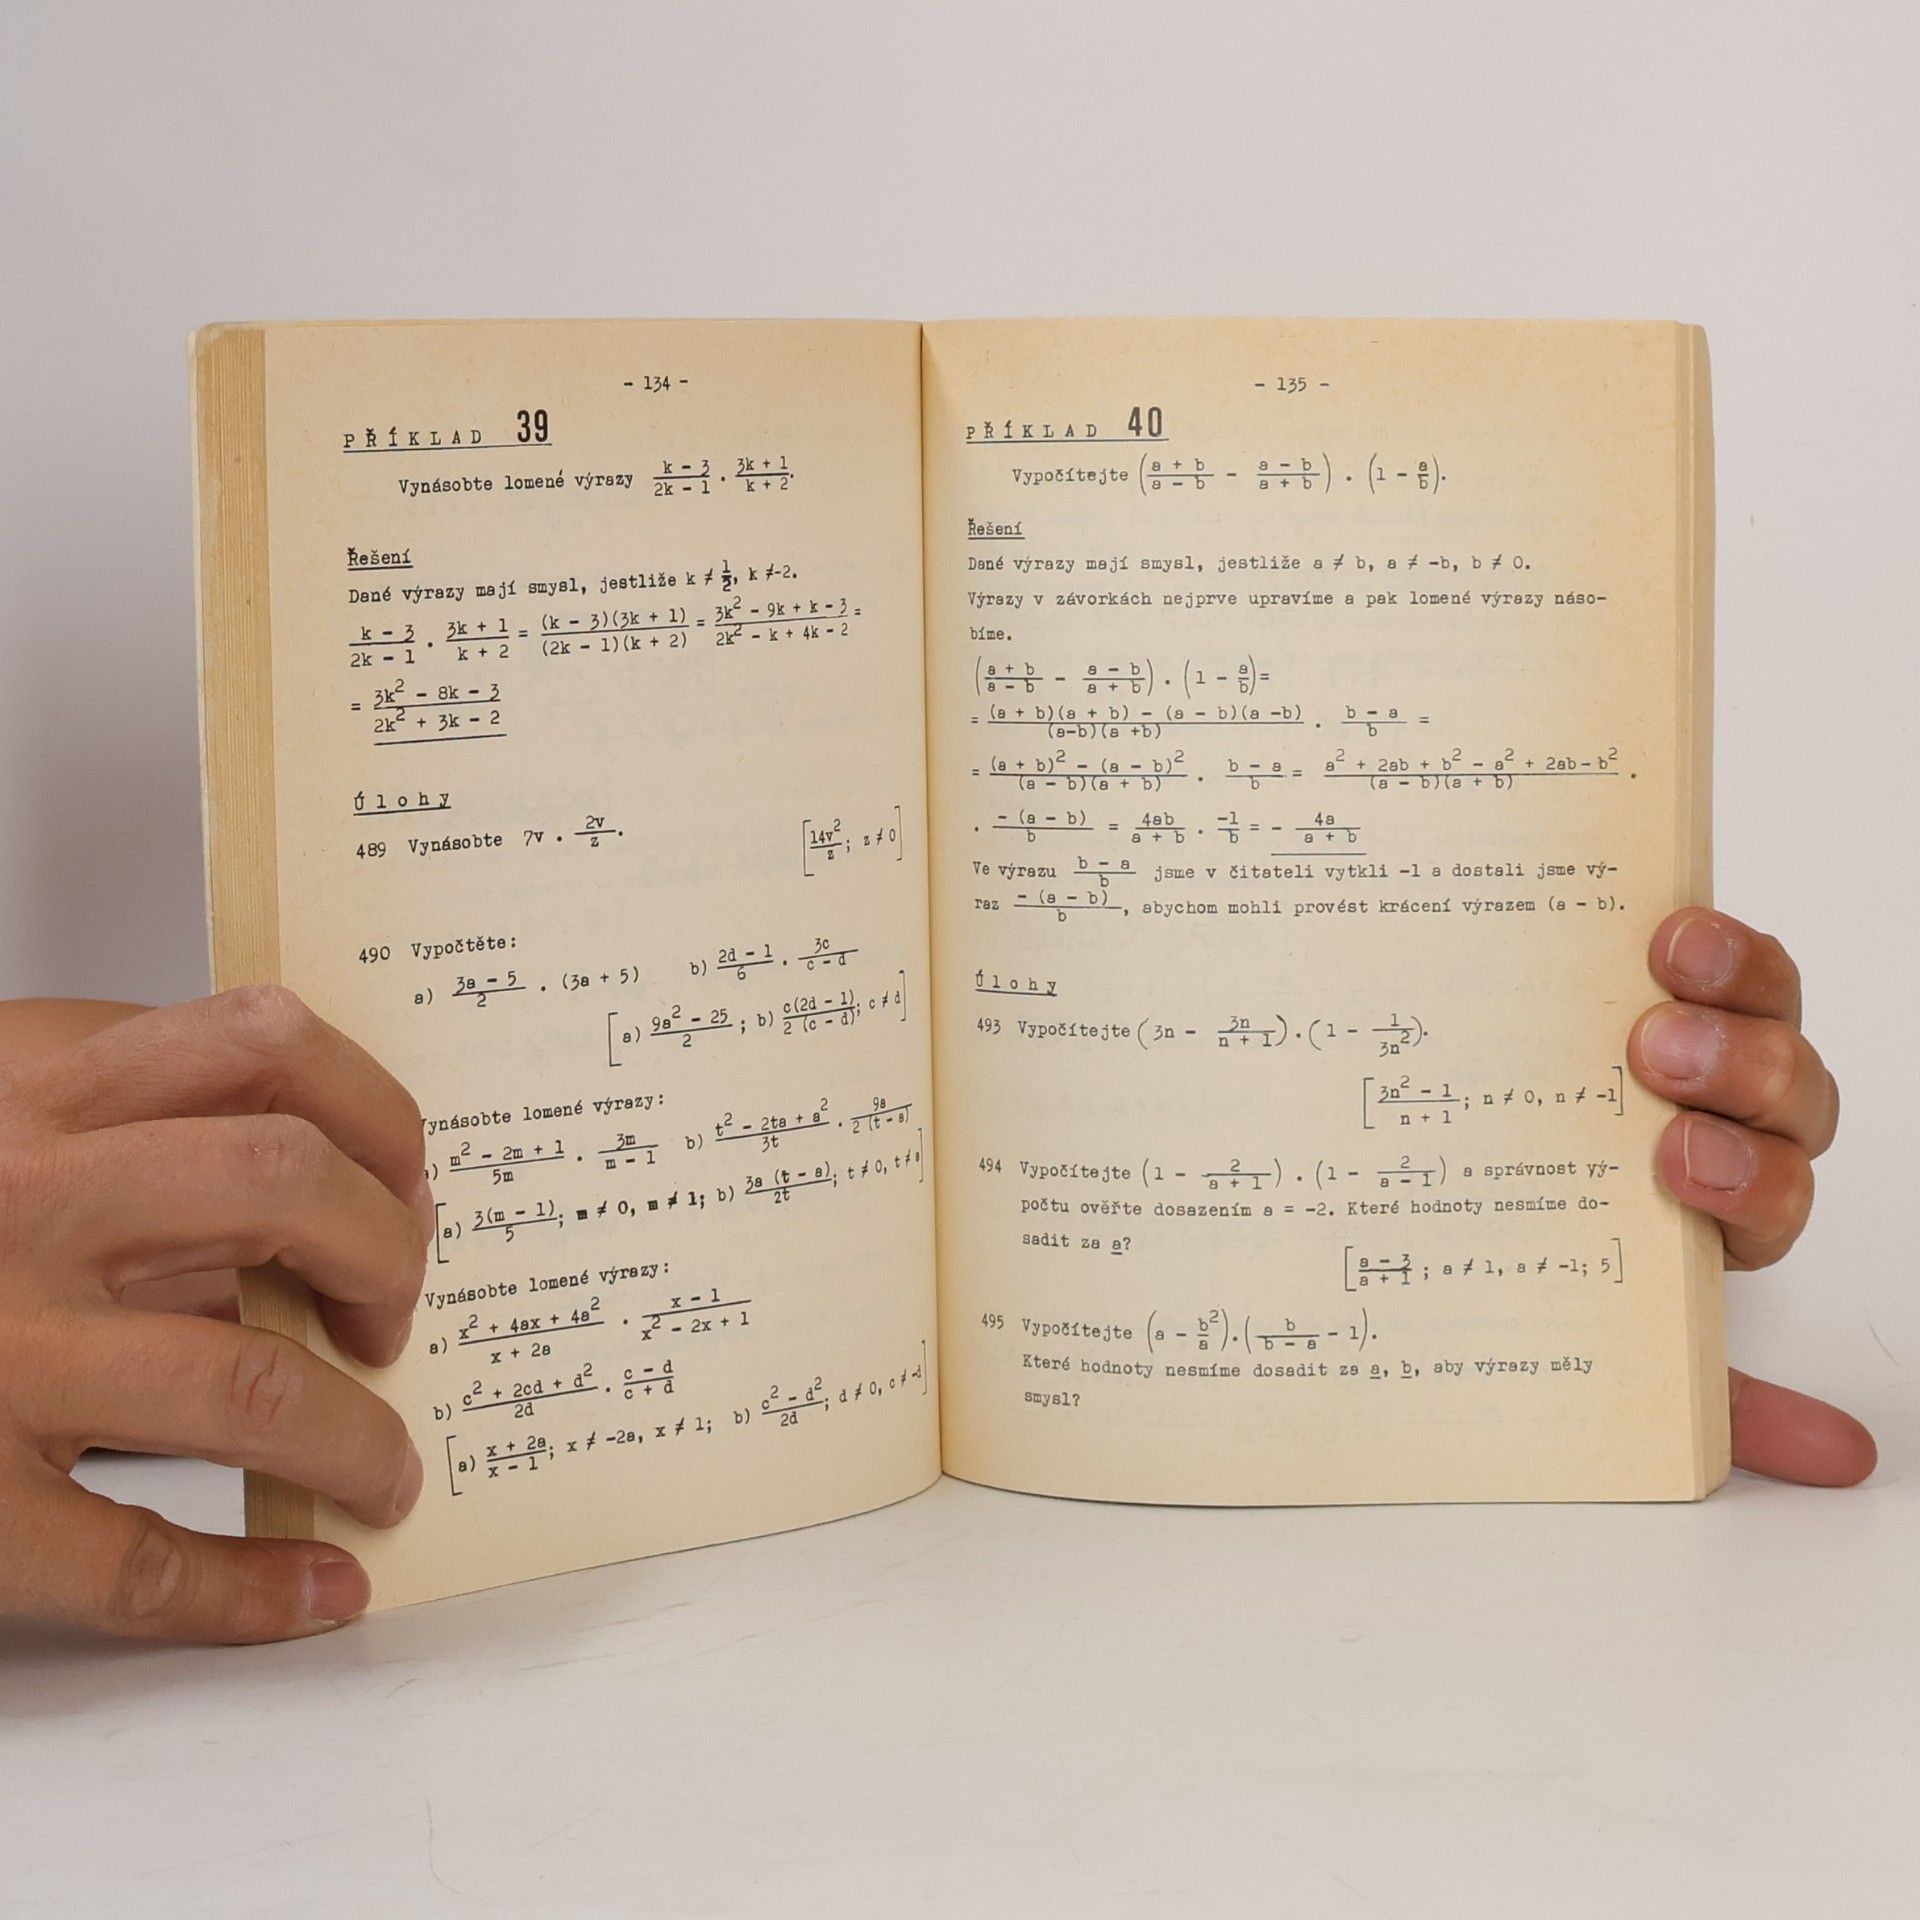 - 134 -
PŘÍKLAD 39
Vynásobte lomené výrazy (k - 3)/(2k - 1) . (3k + 1)/(k + 2).
Řešení
Dané výrazy mají smysl, jestliže k ≠ 1/2, k ≠ -2.
(k - 3)/(2k - 1) . (3k + 1)/(k + 2) = ((k - 3)(3k + 1))/((2k - 1)(k + 2)) = (3k² - 9k + k - 3)/(2k² - k + 4k - 2) =
= (3k² - 8k - 3)/(2k² + 3k - 2)
Úlohy
489 Vynásobte 7v . 2v/z. [14v²/z; z ≠ 0]
490 Vypočtěte:
a) (3a - 5)/2 . (3a + 5) b) (2d - 1)/6 . 3c/(c - d)
[a) (9a² - 25)/2; b) c(2d - 1)/(2 (c - d)); c ≠ d]
Vynásobte lomené výrazy:
a) (m² - 2m + 1)/5m . 3m/(m - 1) b) (t² - 2ta + a²)/3t . 9a/(2 (t - a))
[a) 3(m - 1)/5; m ≠ 0, m ≠ 1; b) 3a (t - a)/2t; t ≠ 0, t ≠ a]
Vynásobte lomené výrazy:
a) (x² + 4ax + 4a²)/(x + 2a) . (x - 1)/(x² - 2x + 1)
b) (c² + 2cd + d²)/2d . (c - d)/(c + d)
[a) (x + 2a)/(x - 1); x ≠ -2a, x ≠ 1; b) (c² - d²)/2d; d ≠ 0, c ≠ -d]
- 135 -
PŘÍKLAD 40
Vypočítejte ((a + b)/(a - b) - (a - b)/(a + b)) . (1 - a/b).
Řešení
Dané výrazy mají smysl, jestliže a ≠ b, a ≠ -b, b ≠ 0.
Výrazy v závorkách nejprve upravíme a pak lomené výrazy náso-
bíme.
((a + b)/(a - b) - (a - b)/(a + b)) . (1 - a/b) =
= ((a + b)(a + b) - (a - b)(a -b))/((a-b)(a +b)) . (b - a)/b =
= ((a + b)² - (a - b)²)/((a - b)(a + b)) . (b - a)/b = (a² + 2ab + b² - a² + 2ab - b²)/((a - b)(a + b)) .
. (- (a - b))/b = 4ab/(a + b) . -1/b = - 4a/(a + b)
Ve výrazu (b - a)/b jsme v čitateli vytkli -1 a dostali jsme vý-
raz (- (a - b))/b, abychom mohli provést krácení výrazem (a - b).
Úlohy
493 Vypočítejte (3n - 3n/(n + 1)) . (1 - 1/3n²).
[(3n² - 1)/(n + 1); n ≠ 0, n ≠ -1]
494 Vypočítejte (1 - 2/(a + 1)) . (1 - 2/(a - 1)) a správnost vý-
počtu ověřte dosazením a = -2. Které hodnoty nesmíme do-
sadit za a?
[(a - 3)/(a + 1); a ≠ 1, a ≠ -1; 5]
495 Vypočítejte (a - b²/a) . (b/(b - a) - 1).
Které hodnoty nesmíme dosadit za a, b, aby výrazy měly
smysl?